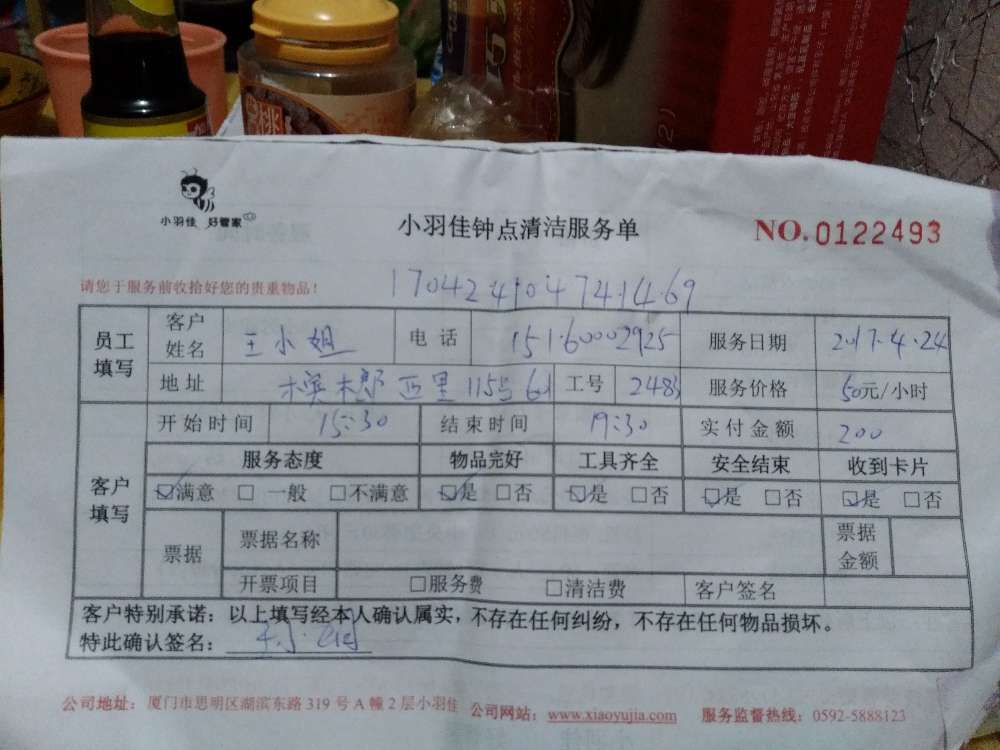 小羽佳 好管家
小羽佳钟点清洁服务单
NO.0122493
请您于服务前收拾好您的贵重物品!
员工填写
客户姓名 王小姐 电话 15160002925 服务日期 2017.4.24
地址 槟榔西里115号 工号 2483 服务价格 50元/小时
客户填写
开始时间 15:30 结束时间 19:30 实付金额 200
服务态度 物品完好 工具齐全 安全结束 收到卡片
☑满意 □一般 □不满意 ☑是 □否 ☑是 □否 ☑是 □否 ☑是 □否
票据 票据名称 票据金额
开票项目 □服务费 □清洁费 客户签名
客户特别承诺：以上填写经本人确认属实，不存在任何纠纷，不存在任何物品损坏。
特此确认签名：
公司地址：厦门市思明区湖滨东路319号A幢2层小羽佳 公司网站：www.xiaoyujia.com 服务监督热线：0592-5888123